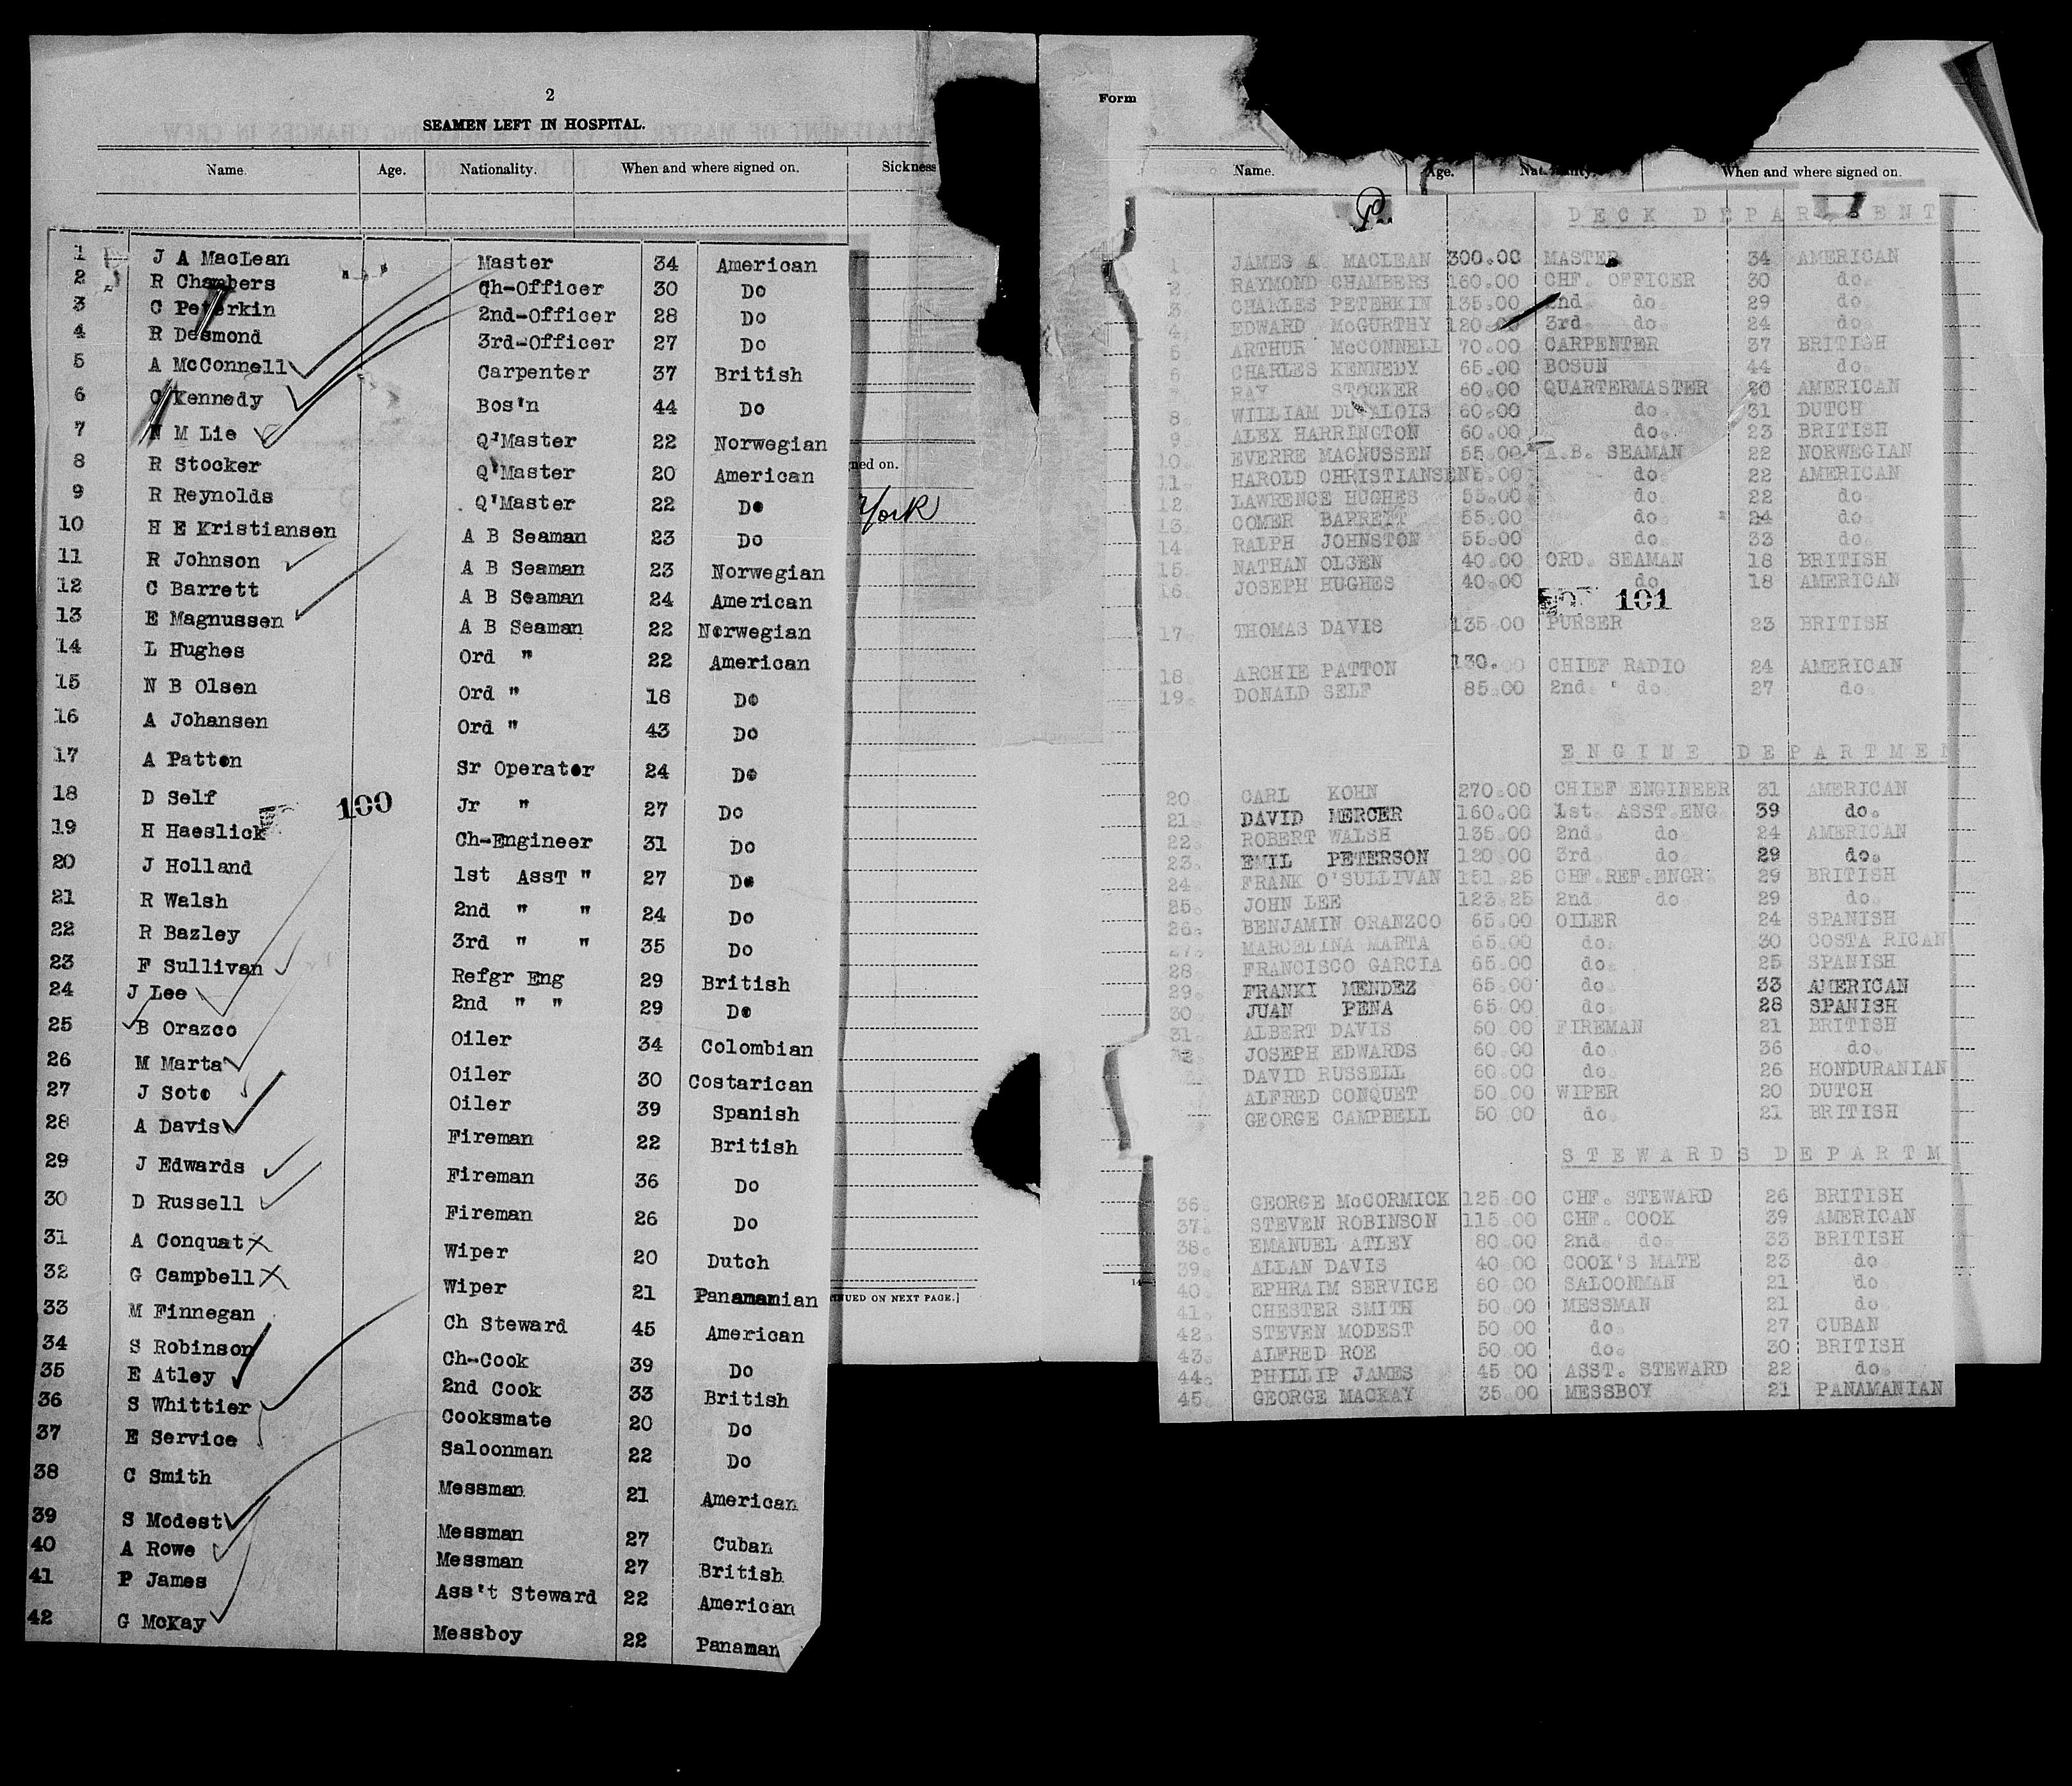 2
SEAMEN LEFT IN HOSPITAL.
Name. Age. Nationality. When and where signed on. Sickness
1 J A MacLean Master 34 American
2 R Chambers Ch-Officer 30 Do
3 C Peterkin 2nd-Officer 28 Do
4 R Desmond 3rd-Officer 27 Do
5 A McConnell Carpenter 37 British
6 C Kennedy Bos'n 44 Do
7 N M Lie Q'Master 22 Norwegian
8 R Stocker Q'Master 20 American
9 R Reynolds Q'Master 22 Do
10 H E Kristiansen A B Seaman 23 Do
11 R Johnson A B Seaman 23 Norwegian
12 C Barrett A B Seaman 24 American
13 E Magnussen A B Seaman 22 Norwegian
14 L Hughes Ord " 22 American
15 N B Olsen Ord " 18 Do
16 A Johansen Ord " 43 Do
17 A Patton Sr Operator 24 Do
18 D Self Jr " 27 Do
100
19 H Haeslick Ch-Engineer 31 Do
20 J Holland 1st AssT " 27 Do
21 R Walsh 2nd " " 24 Do
22 R Bazley 3rd " " 35 Do
23 F Sullivan Refgr Eng 29 British
24 J Lee 2nd " " 29 Do
25 B Orazco Oiler 34 Colombian
26 M Marta Oiler 30 Costarican
27 J Soto Oiler 39 Spanish
28 A Davis Fireman 22 British
29 J Edwards Fireman 36 Do
30 D Russell Fireman 26 Do
31 A Conquat Wiper 20 Dutch
32 G Campbell Wiper 21 Panamanian
33 M Finnegan Ch Steward 45 American
34 S Robinson Ch-Cook 39 Do
35 E Atley 2nd Cook 33 British
36 S Whittier Cooksmate 20 Do
37 E Service Saloonman 22 Do
38 C Smith Messman 21 American
39 S Modest Messman 27 Cuban
40 A Rowe Messman 27 British
41 P James Ass't Steward 22 American
42 G McKay Messboy 22 Panaman
ned on.
York
NUED ON NEXT PAGE.]
Form
Name. Age. When and where signed on.
DECK DEPARTMENT
1 JAMES A. MACLEAN 300.00 MASTER 34 AMERICAN
2. RAYMOND CHAMBERS 160.00 CHF. OFFICER 30 do.
3. CHARLES PETERKIN 135.00 2nd. do. 29 do.
4. EDWARD McGURTHY 120.00 3rd. do. 24 do.
5 ARTHUR McCONNELL 70.00 CARPENTER 37 BRITISH
6 CHARLES KENNEDY 65.00 BOSUN 44 do.
RAY STOCKER 60.00 QUARTERMASTER 20 AMERICAN
8. WILLIAM 60.00 do. 31 DUTCH
9. ALEX HARRINGTON 60.00 do. 23 BRITISH
10. EVERRE MAGNUSSEN 55.00 A.B. SEAMAN 22 NORWEGIAN
11 HAROLD CHRISTIANSEN 55.00 do. 22 AMERICAN
12 LAWRENCE HUGHES 55.00 do. 22 do.
13. COMER BARRETT 55.00 do. 24 do.
14. RALPH JOHNSTON 55.00 do. 33 do.
15. NATHAN OLSEN 40.00 ORD. SEAMAN 18 BRITISH
16. JOSEPH HUGHES 40.00 do. 18 AMERICAN
101
17. THOMAS DAVIS 135.00 PURSER 23 BRITISH
18. ARCHIE PATTON 130.00 CHIEF RADIO 24 AMERICAN
19. DONALD SELF 85.00 2nd. do. 27 do.
ENGINE DEPARTMEN
20. CARL KOHN 270.00 CHIEF ENGINEER 31 AMERICAN
21. DAVID MERCER 160.00 1st. ASST.ENG. 39 do.
22. ROBERT WALSH 135.00 2nd. do. 24 AMERICAN
23. EMIL PETERSON 120.00 3rd. do. 29 do.
24. FRANK O'SULLIVAN 151.25 CHF.REF.ENGR. 29 BRITISH
25. JOHN LEE 123.25 2nd. do 29 do.
26. BENJAMIN ORANZCO 65.00 OILER 24 SPANISH
27. MARCELINA MARTA 65.00 do. 30 COSTA RICAN
28. FRANCISCO GARCIA 65.00 do. 25 SPANISH
29. FRANKI MENDEZ 65.00 do. 33 AMERICAN
30. JUAN PENA 65.00 do. 28 SPANISH
31. ALBERT DAVIS 60.00 FIREMAN 21 BRITISH
32. JOSEPH EDWARDS 60.00 do. 36 do.
DAVID RUSSELL 60.00 do. 26 HONDURANIAN
ALFRED CONQUET 50.00 WIPER 20 DUTCH
GEORGE CAMPBELL 50.00 do. 21 BRITISH
STEWARDS DEPARTM
36. GEORGE McCORMICK 125.00 CHF. STEWARD 26 BRITISH
37. STEVEN ROBINSON 115.00 CHF. COOK 39 AMERICAN
38. EMANUEL ATLEY 80.00 2nd. do. 33 BRITISH
39. ALLAN DAVIS 40.00 COOK'S MATE 23 do
40. EPHRAIM SERVICE 60.00 SALOONMAN 21 do
41. CHESTER SMITH 50.00 MESSMAN 21 do.
42. STEVEN MODEST 50.00 do. 27 CUBAN
43. ALFRED ROE 50.00 do. 30 BRITISH
44. PHILLIP JAMES 45.00 ASST. STEWARD 22 do.
45. GEORGE MACKAY 35.00 MESSBOY 21 PANAMANIAN